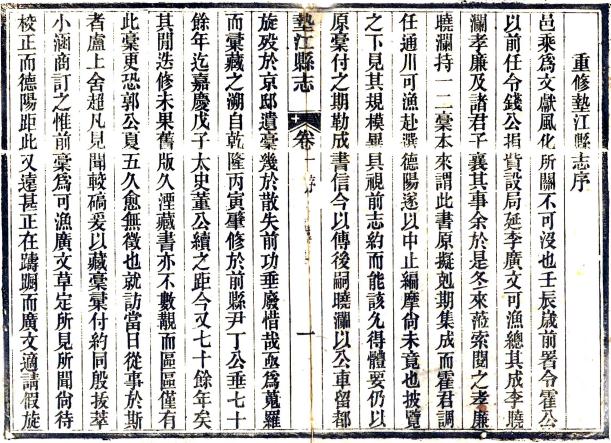 重修墊江縣志序
邑乘爲文獻風化所關不可沒也壬辰歲前署令霍公
以前任令錢公捐貲設局延李廣文可漁總其成李曉
瀾孝廉及諸君子襄其事余於是冬來蒞索閱之孝廉
曉瀾持一二稾本來謂此書原擬剋期集成而霍君調
任通川可漁赴選德陽遂以中止編摩尙未竟也披覽
之下見其規模畢具視前志約而能該允得體要仍以
原稾付之期勒成書信今以傳後嗣曉瀾以公車留都
墊江縣志
卷一
序
一
旋歿於京邸遺稾幾於散失前功垂廢惜哉亟爲蒐羅
而彙藏之溯自乾隆丙寅肇修於前縣尹丁公垂七十
餘年迄嘉慶戊子太史董公續之距今又七十餘年矣
其閒迭修未果舊版久湮藏書亦不數覯而區區僅有
此稾更恐郭公夏五久愈無徵也就訪當日從事於斯
者盧上舍超凡見聞較碻爰以藏稾彙付約同殷拔萃
小涵商訂之惟前稾爲可漁廣文草定所見所聞尙待
校正而德陽距此又遠甚正在躊躕而廣文適請假旋